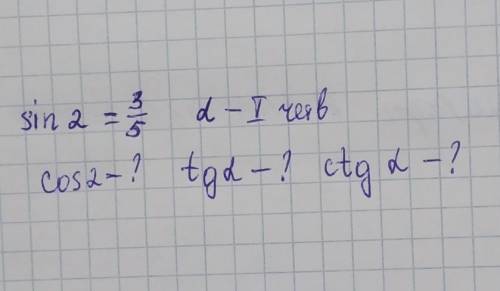 sin α = 3/5 α - I четв
cos α - ? tg α - ? ctg α - ?